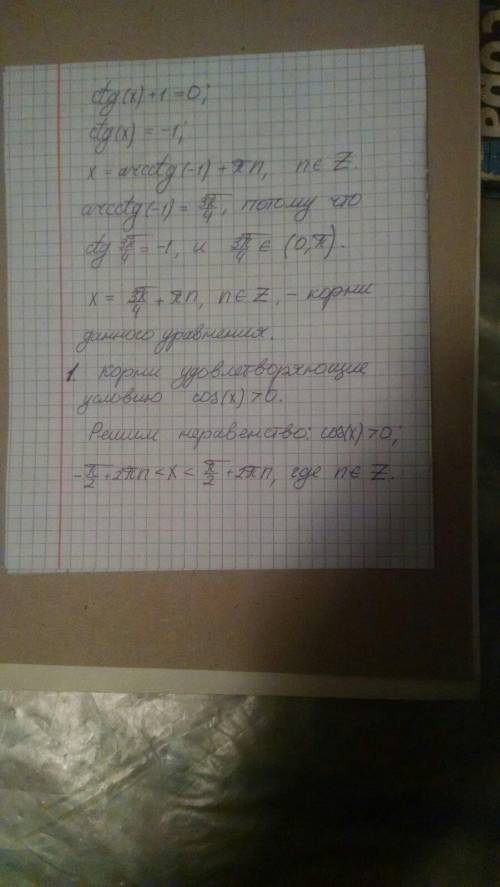 ctg(x)+1=0;
ctg(x) = -1;
x = arcctg(-1) + πn, n∈Z.
arcctg(-1) = 3π/4, потому что
ctg 3π/4 = -1, и 3π/4 ∈ (0,π).
x = 3π/4 + πn, n∈Z, - корни
данного уравнения.
1. корни удовлетворяющие
условию cos(x)>0.
Решим неравенство: cos(x)>0;
-π/2+2πn < x < π/2+2πn, где n∈Z.